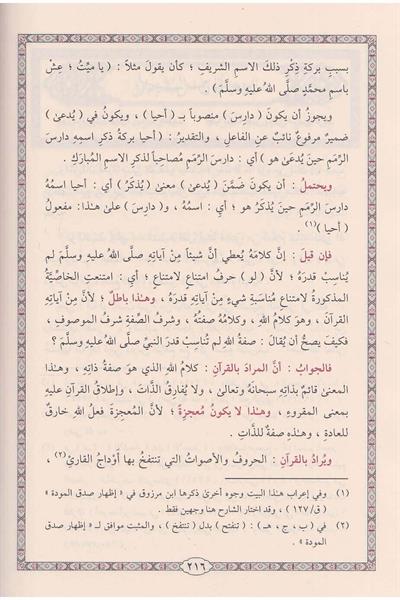 بسببِ بركةِ ذِكْرِ ذلكَ الاسمِ الشريفِ ؛ كأن يقولَ مثلاً : ( يا ميِّتُ ؛ عِشْ
باسمِ محمَّدٍ صلَّى اللهُ عليهِ وسلَّمَ ) .
ويجوزُ أن يكونَ ( دارِسَ ) منصوباً بـ ( أحيا ) ، ويكونُ في ( يُدعىٰ )
ضميرٌ مرفوعٌ نائبٌ عنِ الفاعلِ ، والتقديرُ : ( أحيا بركةُ ذكرِ اسمِهِ دارسَ
الرِّممِ حينَ يُدعىٰ هو ) أي : دارس الرِّمَمِ مُصاحِباً لذكرِ الاسمِ المُبارَكِ .
ويحتملُ : أن يكونَ ضَمَّنَ ( يُدعىٰ ) معنىٰ ( يُذكَرُ ) أي : أحيا اسمُهُ
دارسَ الرِّمَمِ حينَ يُذكَرُ هو ؛ أي : اسمُهُ ، و( دارِسَ ) علىٰ هـٰذا : مفعولُ
( أحيا )(١) .
فإن قيلَ : إنَّ كلامَهُ يُعطي أنَّ شيئاً مِنْ آياتِهِ صلَّى اللهُ عليهِ وسلَّمَ لم
يُناسِبْ قدرَهُ ؛ لأنَّ ( لو ) حرفُ امتناعٍ لامتناعٍ ؛ أي : امتنعتِ الخاصِّيَّةُ
المذكورةُ لامتناعِ مُناسَبةِ شيءٍ مِنْ آياتِهِ قدرَهُ ، وهـٰذا باطلٌ ؛ لأنَّ مِنْ آياتِهِ
القرآنَ ، وهو كلامُ اللهِ ، وكلامُهُ صفتُهُ ، وشرفُ الصِّفةِ شرفُ الموصوفِ ،
فكيفَ يصحُّ أن يُقالَ : صفةُ اللهِ لم تُناسِبْ قدرَ النبيِّ صلَّى اللهُ عليهِ وسلَّمَ ؟
فالجوابُ : أنَّ المرادَ بالقرآنِ : كلامُ اللهِ الذي هو صفةُ ذاتِهِ ، وهـٰذا
المعنىٰ قائمٌ بذاتِهِ سبحانَهُ وتعالىٰ ، ولا يُفارِقُ الذَّاتَ ، وإطلاقُ القرآنِ عليهِ
بمعنى المقروءِ ، وهـٰذا لا يكونُ مُعجِزةً ؛ لأنَّ المُعجِزةَ فعلُ اللهِ خارقٌ
للعادةِ ، وهـٰذهِ صفةٌ للذَّاتِ .
ويُرادُ بالقرآنِ : الحروفُ والأصواتُ التي تنتفخُ بها أَوْداجُ القارئِ(٢) ،
(١) وفي إعراب هـٰذا البيت وجوه أخرىٰ ذكرها ابن مرزوق في « إظهار صدق المودة »
( ق/١٢٧ ) ، وقد اختار الشارح هنا وجهين فقط .
(٢) في ( ب ، ج ، هـ ) : ( تنفتح ) بدل ( تنتفخ ) ، والمثبت موافق لـ « إظهار صدق
المودة » .
٢١٦